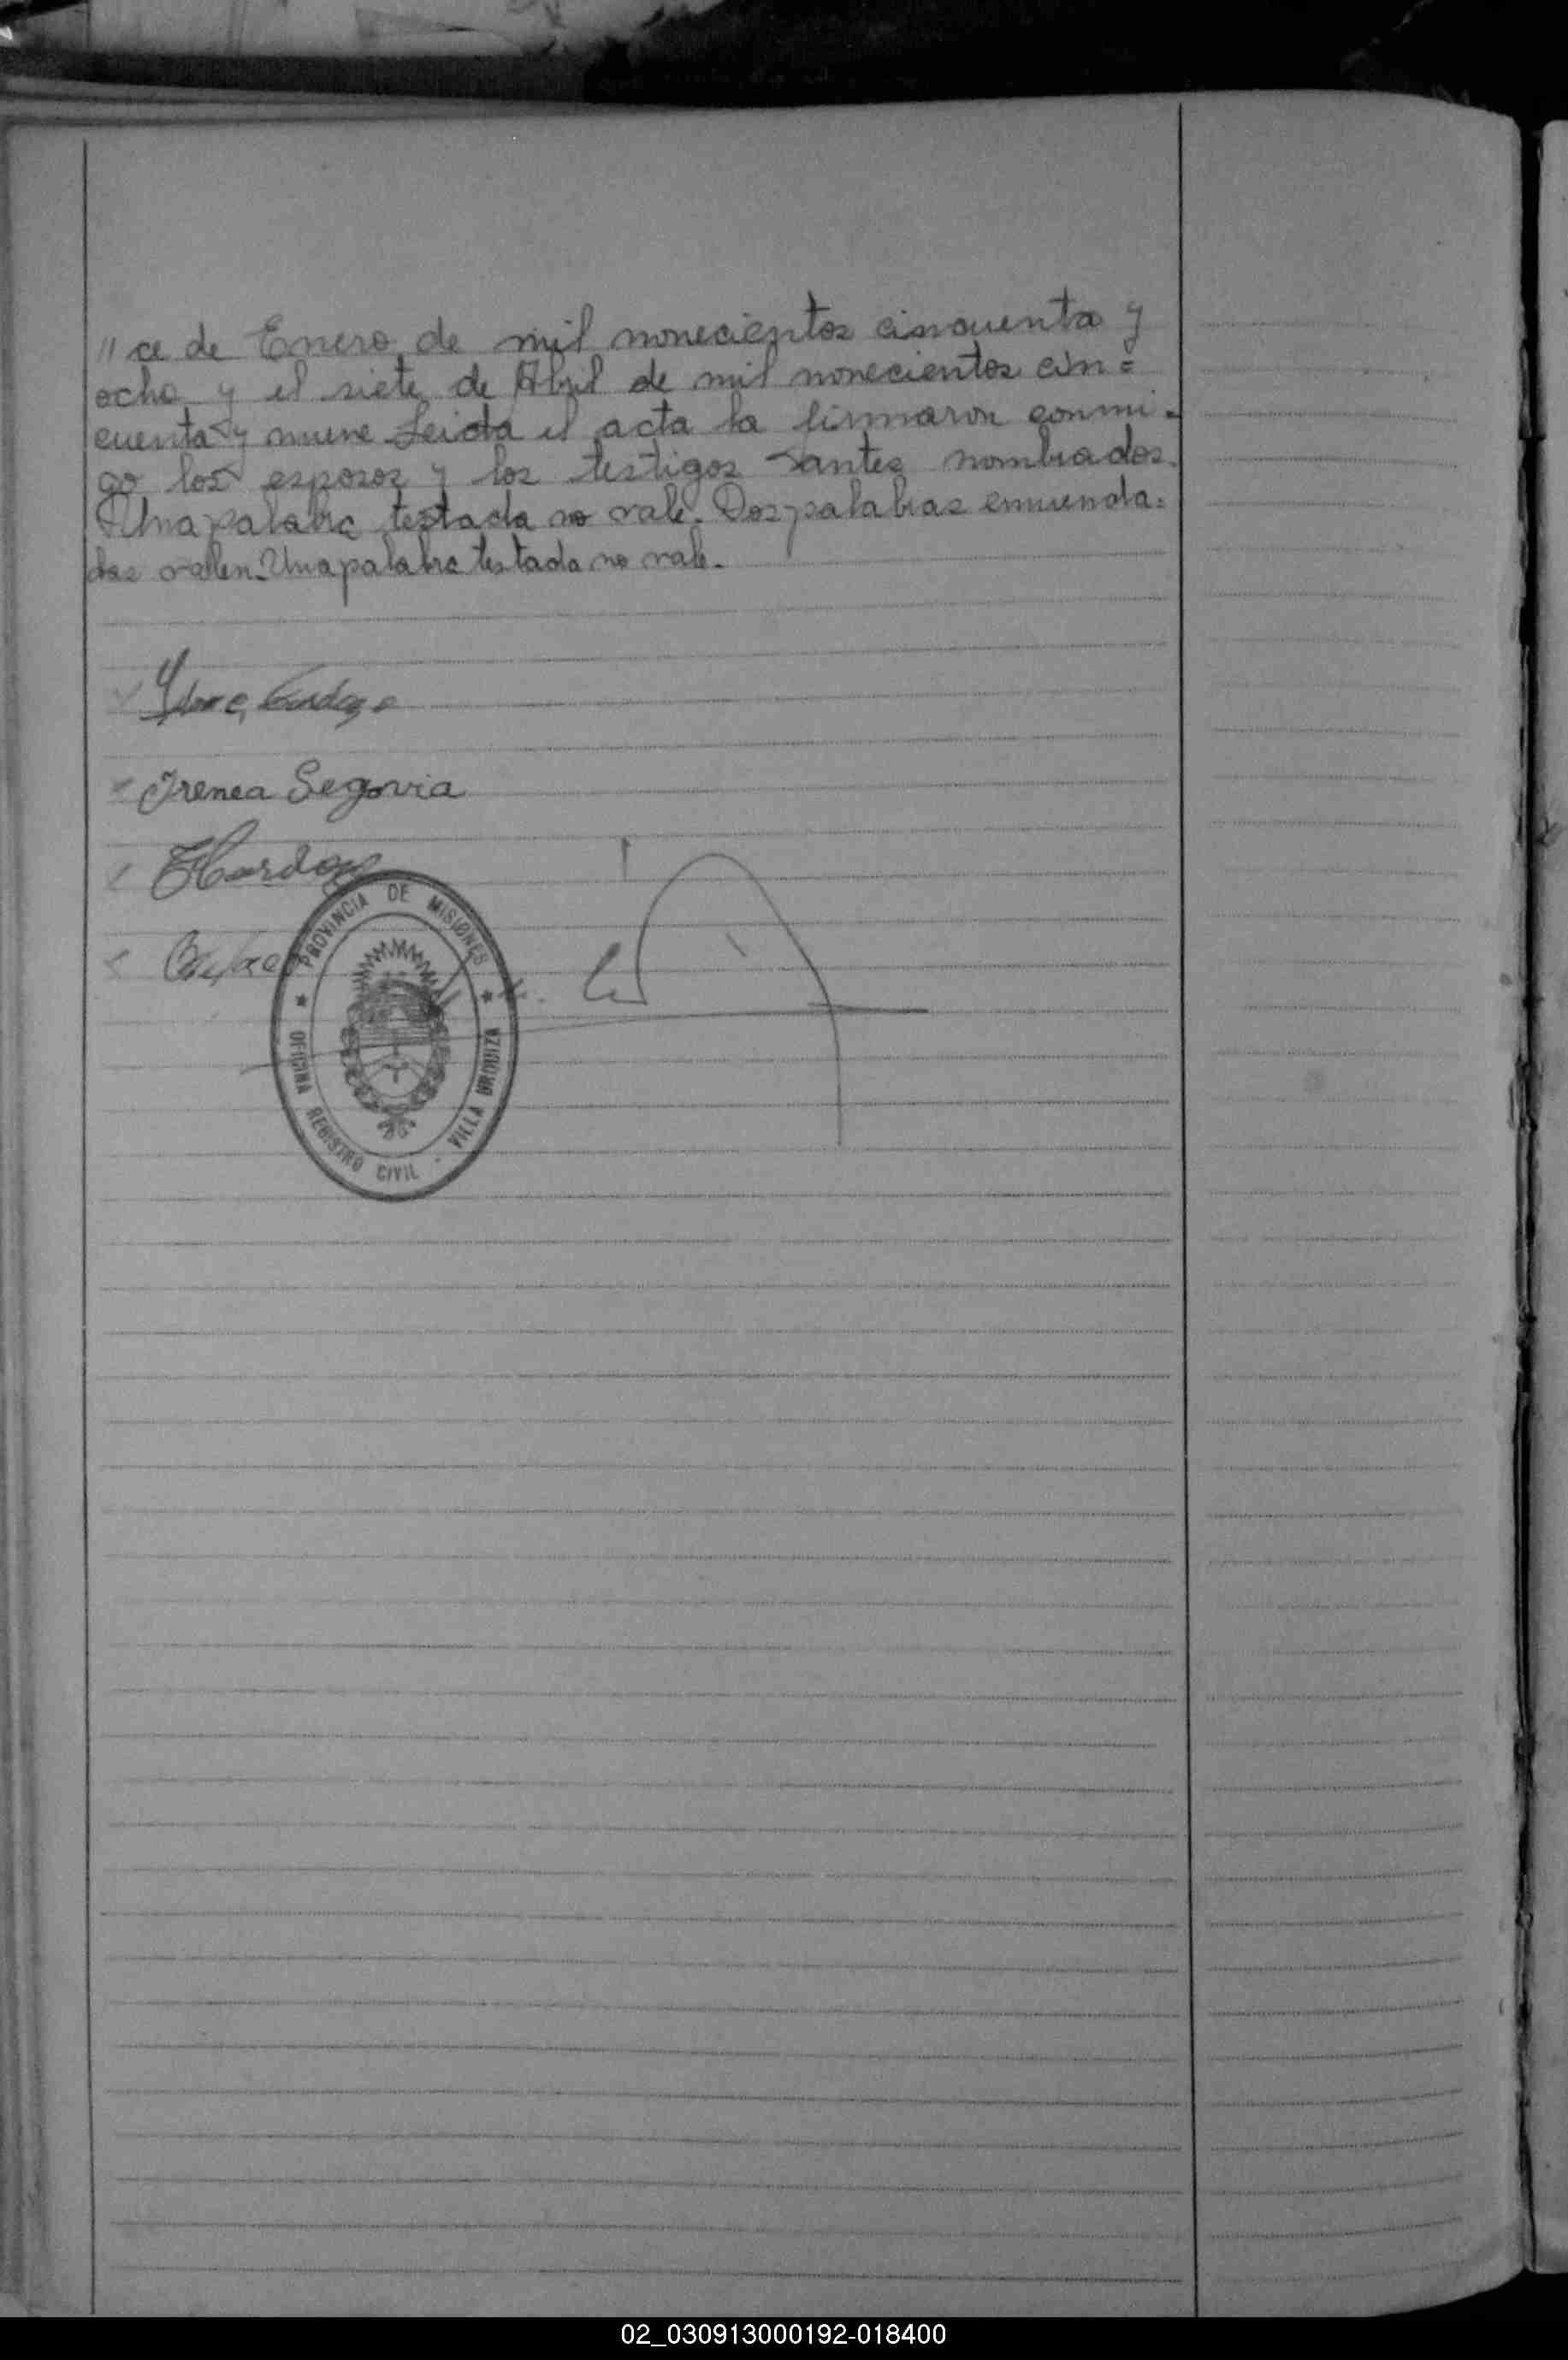 " ce de Enero de mil nonecientos cincuenta y
ocho y el siete de Abril de mil nonecientos cin=
cuenta y nueve Leida el acta la firmaron conmi-
go los esposos y los testigos antes nombrados.
Una palabra testada no vale. Dos palabras enmenda=
das valen. Una palabra testada no vale.
Irenea Segovia
PROVINCIA DE MISIONES
OFICINA REGISTRO CIVIL - VILLA URQUIZA
02_030913000192-018400